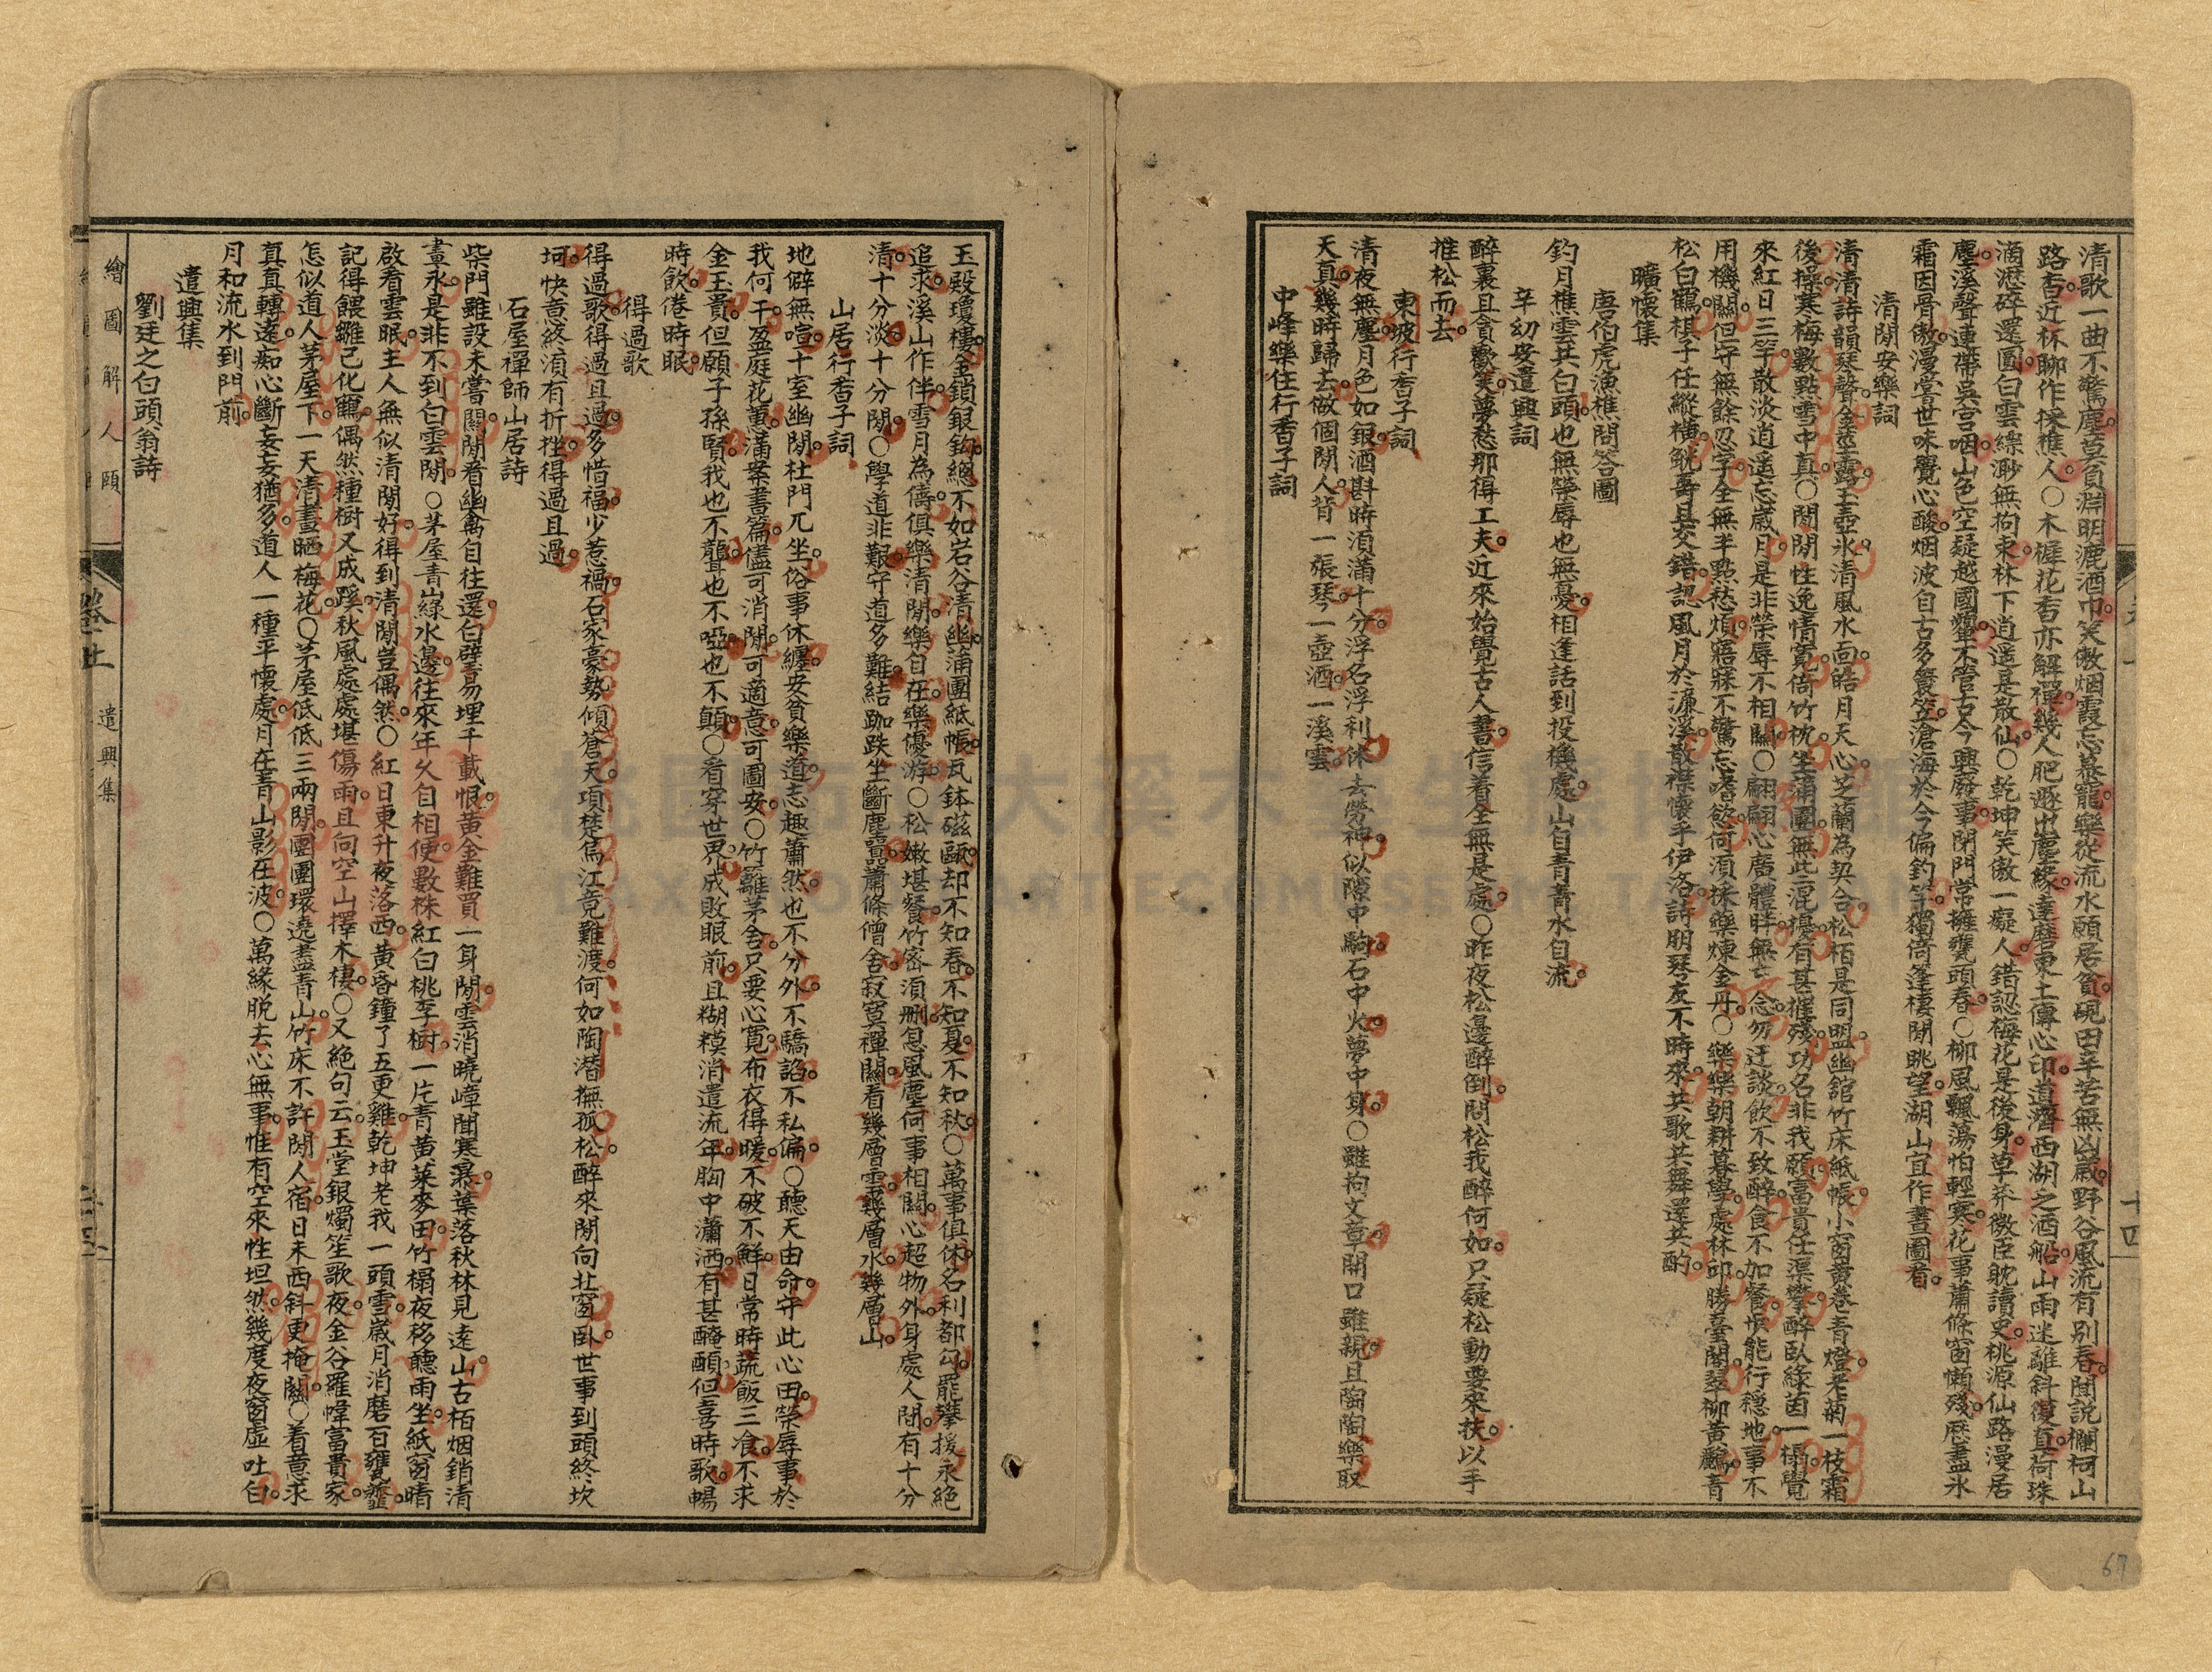 清歌一曲不驚塵莫負淵明漉酒巾笑傲烟霞忘慕寵樂從流水願居貧硯田辛苦無凶歲野谷風流有別春聞說欄柯山
路杳近林聊作採樵人○木樨花香亦解禪幾人肥遯出塵緣達磨東土傳心印道濟西湖之酒船山雨迷離斜復直荷珠
滴瀝碎還圓白雲縹渺無拘束林下逍遥是散仙○乾坤笑傲一癡人錯認梅花是後身草莽微臣躭讀史桃源仙路漫居
塵溪聲連帶吳宮咽山色空疑越國顰不管古今興廢事閉門常擁甕頭春○柳風飄蕩怕輕寒花事蕭條窗懶殘歷盡氷
霜因骨傲漫嘗世味覺心酸烟波自古多簑笠滄海於今偏釣竿獨倚蓬樓閒眺望湖山宜作畫圖看
清閒安樂詞
清清詩韻琴聲金莖露玉壺氷清風水面皓月天心芝蘭為契合松栢是同盟幽舘竹床紙帳小窗黄卷青燈老菊一枝霜
後操寒梅數點雪中真○閒閒性逸情寬倚竹枕坐蒲團無此混擾有甚摧殘功名非我願富貴任渠攀醉臥綠茵一榻覺
來紅日三竿散淡逍遥忘歲月是非榮辱不相關○翩翩心廣體胖無亡念勿迂談飲不致醉食不加餐惧能行穩地事不
用機關但守無餘忍字全無半點愁煩寤寐不驚忘嗜慾何須採藥煉金丹○樂樂朝耕暮學處林邱勝臺閣翠柳黄鸝青
松白鶴棋子任縱橫觥籌且交錯認風月於濂溪散襟懷乎伊洛詩朋琴友不時來共歌共舞還共酌
曠懷集
唐伯虎漁樵問答圖
釣月樵雲共白頭也無榮辱也無憂相逢話到投機處山自青青水自流
辛幼安遣興詞
醉裏且貪歡笑夢愁那得工夫近來始覺古人書信着全無是處○昨夜松邊醉倒問松我醉何如只疑松動要來扶以手
推松而去
東坡行香子詞
清夜無塵月色如銀酒斟時須滿十分浮名浮利休去勞神似隙中駒石中火夢中身○雖抱文章開口雖親且陶陶樂取
天真幾時歸去做個閒人背一張琴一壺酒一溪雲
中峰樂住行香子詞
玉殿瓊樓金鎖銀鈎總不如岩谷清幽蒲團紙帳瓦鉢磁甌却不知春不知夏不知秋○萬事俱休名利都勾罷攀援永絕
追求溪山作伴雪月為儔俱樂清閒樂自在樂優游○松嫩堪餐竹密須刪息風塵何事相關心超物外身處人間有十分
清十分淡十分閒○學道非艱守道多難結跏趺坐斷塵囂蕭條僧舍寂寞禪關看幾層雲幾層水幾層山
山居行香子詞
地僻無喧十室幽閒杜門兀坐俗事休纏安貧樂道志趣蕭然也不分外不驕諂不私偏○聽天由命守此心田榮辱事於
我何干盈庭花蕙滿案書篇儘可消閒可適意可圖安○竹籬茅舍只要心寬布衣得暖不破不鮮日常時蔬飯三飡不求
金玉貴但願子孫賢我也不聾也不啞也不顛○看穿世界成敗眼前且糊糢消遣流年胸中瀟洒有甚醃䤄但喜時歌暢
時飲倦時眠
得過歌
得過歌得過且過多惜福少惹禍石家豪勢傾蒼天項楚烏江竟難渡何如陶潛撫孤松醉來閒向北窗卧世事到頭終坎
坷快意終須有折挫得過且過
石屋禪師山居詩
柴門雖設未嘗關閒看幽禽自往還白璧易埋千載恨黄金難買一身閒雲消曉嶂聞寒瀑葉落秋林見遠山古栢烟銷清
晝永是非不到白雲閒○茅屋青山綠水邊往來年久自相便數株紅白桃李樹一片青黄菜麥田竹榻夜移聽雨坐紙窗晴
啟看雲眠主人無似清閒好得到清閒豈偶然○紅日東升夜落西黄昏鐘了五更雞乾坤老我一頭雪歲月消磨百甕虀
記得餵雞已化鶴偶然種樹又成蹊秋風處處堪傷雨且向空山擇木棲○又絕句云玉堂銀燭笙歌夜金谷羅幃富貴家
怎似道人茅屋下一天清晝晒梅花○茅屋低低三兩間團團環遶盡青山竹床不許閒人宿日未西斜更掩關○着意求
真真轉遠痴心斷妄妄猶多道人一種平懷處月在青山影在波○萬緣脱去心無事惟有空來性坦然幾度夜窗虛吐白
月和流水到門前
遣興集
劉廷之白頭翁詩
繪圖解人頤
卷上
遣興集
十四
67